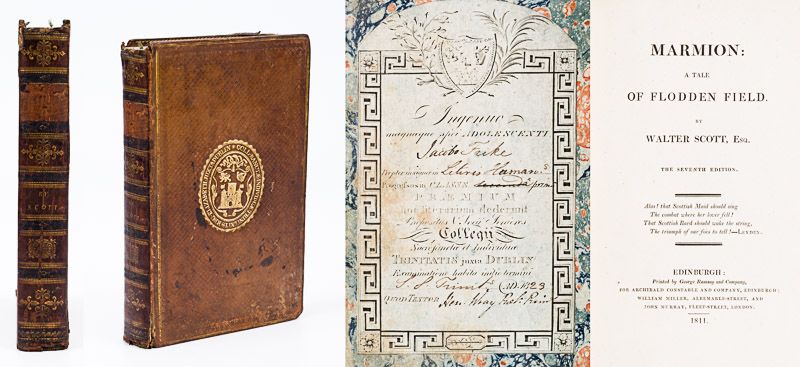 BY
SCOTT
Ingenuo
magnaeque spei ADOLESCENTI
Jacobo
Propter insignem in Literis Humanis
Progressum in CLASSE secunda prim
PRÆMIUM
hoc literarium dederunt
Præpositus & Socii Seniores
Collegii
Sacrosanctæ et Individuæ
TRINITATIS juxta DUBLIN
Examinatione habita initio termini
S. S. Trinit. A.D. 1823
QUOD TESTOR Hen. Wray
MARMION:
A TALE
OF FLODDEN FIELD.
BY
WALTER SCOTT, Esq.
THE SEVENTH EDITION.
Alas! that Scottish Maid should sing
The combat where her lover fell!
That Scottish Bard should wake the string,
The triumph of our foes to tell!—LEYDEN.
EDINBURGH:
Printed by George Ramsay and Company,
FOR ARCHIBALD CONSTABLE AND COMPANY, EDINBURGH;
WILLIAM MILLER, ALBEMARLE-STREET, AND
JOHN MURRAY, FLEET-STREET, LONDON.
1811.